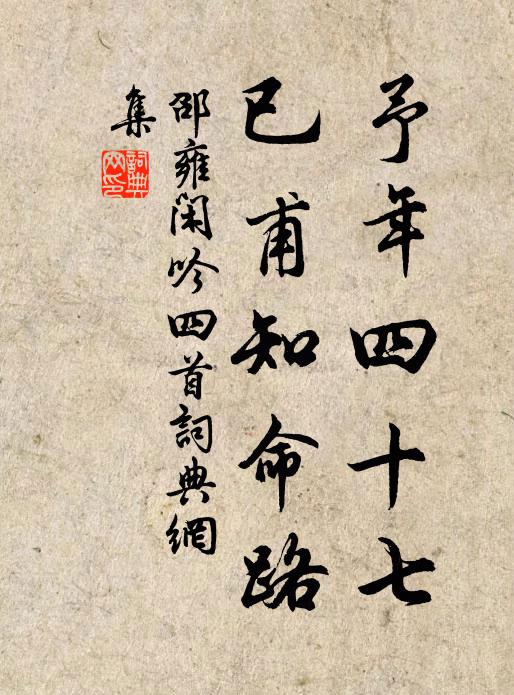 予年四十七
已甫知命路
邵雍閑吟四首詞典網
集
詞典
网印